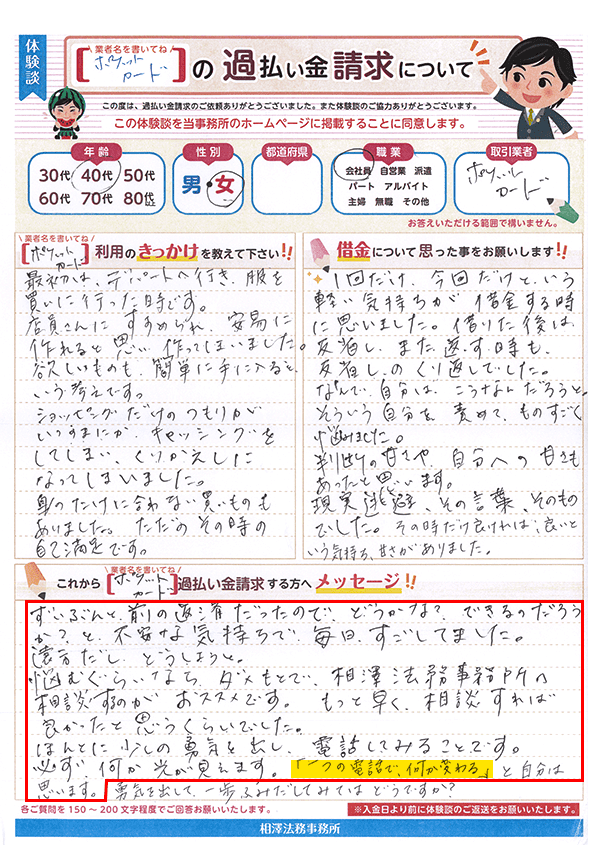 体験談
業者名を書いてね
[ポケットカード]の過払い金請求について
この度は、過払い金請求のご依頼ありがとうございました。また体験談のご協力ありがとうございます。
この体験談を当事務所のホームページに掲載することに同意します。
年齢
30代 40代 50代
60代 70代 80代
性別
男・女
都道府県
職業
会社員 自営業 派遣
パート アルバイト
主婦 無職 その他
取引業者
ポケットカード
お答えいただける範囲で構いません。
業者名を書いてね
[ポケットカード]利用のきっかけを教えて下さい!!
最初は、デパートへ行き、服を
買いに行った時です。
店員さんに すすめられ、安易に
作れると思い、作ってしまいました。
欲しいものも、簡単に手に入ると
いう考えです。
ショッピングだけのつもりが
いつまにか、キャッシングを
してしまい、くりかえしに
なってしまいました。
身のたけに合わない買いものも
ありました。ただの その時の
自己満足です。
借金について思った事をお願いします!!
1回だけ、今回だけと、いう
軽い気持ちが 借金する時
に思いました。借りた後は、
反省し、また返す時も、
反省しのくり返しでした。
なんで、自分は、こうなんだろうと。
そういう自分を、責めて、ものすごく
悩みました。
判断の甘さや、自分への甘さも
あったと思います。
現実逃避、その言葉、そのもの
でした。その時だけ良ければ、良いと
いう気持ち、甘さがありました。
業者名を書いてね
これから[ポケットカード]過払い金請求する方へ メッセージ!!
ずいぶんと前の返済だったので どうかな? できるのだろう
か?と、不安な気持ちで、毎日、すごしてました。
遠方だし、どうしようと。
悩むぐらいなら、ダメもとで、相澤法務事務所へ
相談するのが おススメです。 もっと早く、相談すれば
良かったと思うくらいでした。
ほんとに少しの勇気を出し、電話してみることです。
必ず 何か光が見えます。「一つの電話で、何か変わる」と自分は
思います。勇気を出して、一歩ふみだしてみてはどうですか?
各ご質問を150~200文字程度でご回答お願いいたします。
※入金日より前に体験談のご返送をお願いいたします。
相澤法務事務所